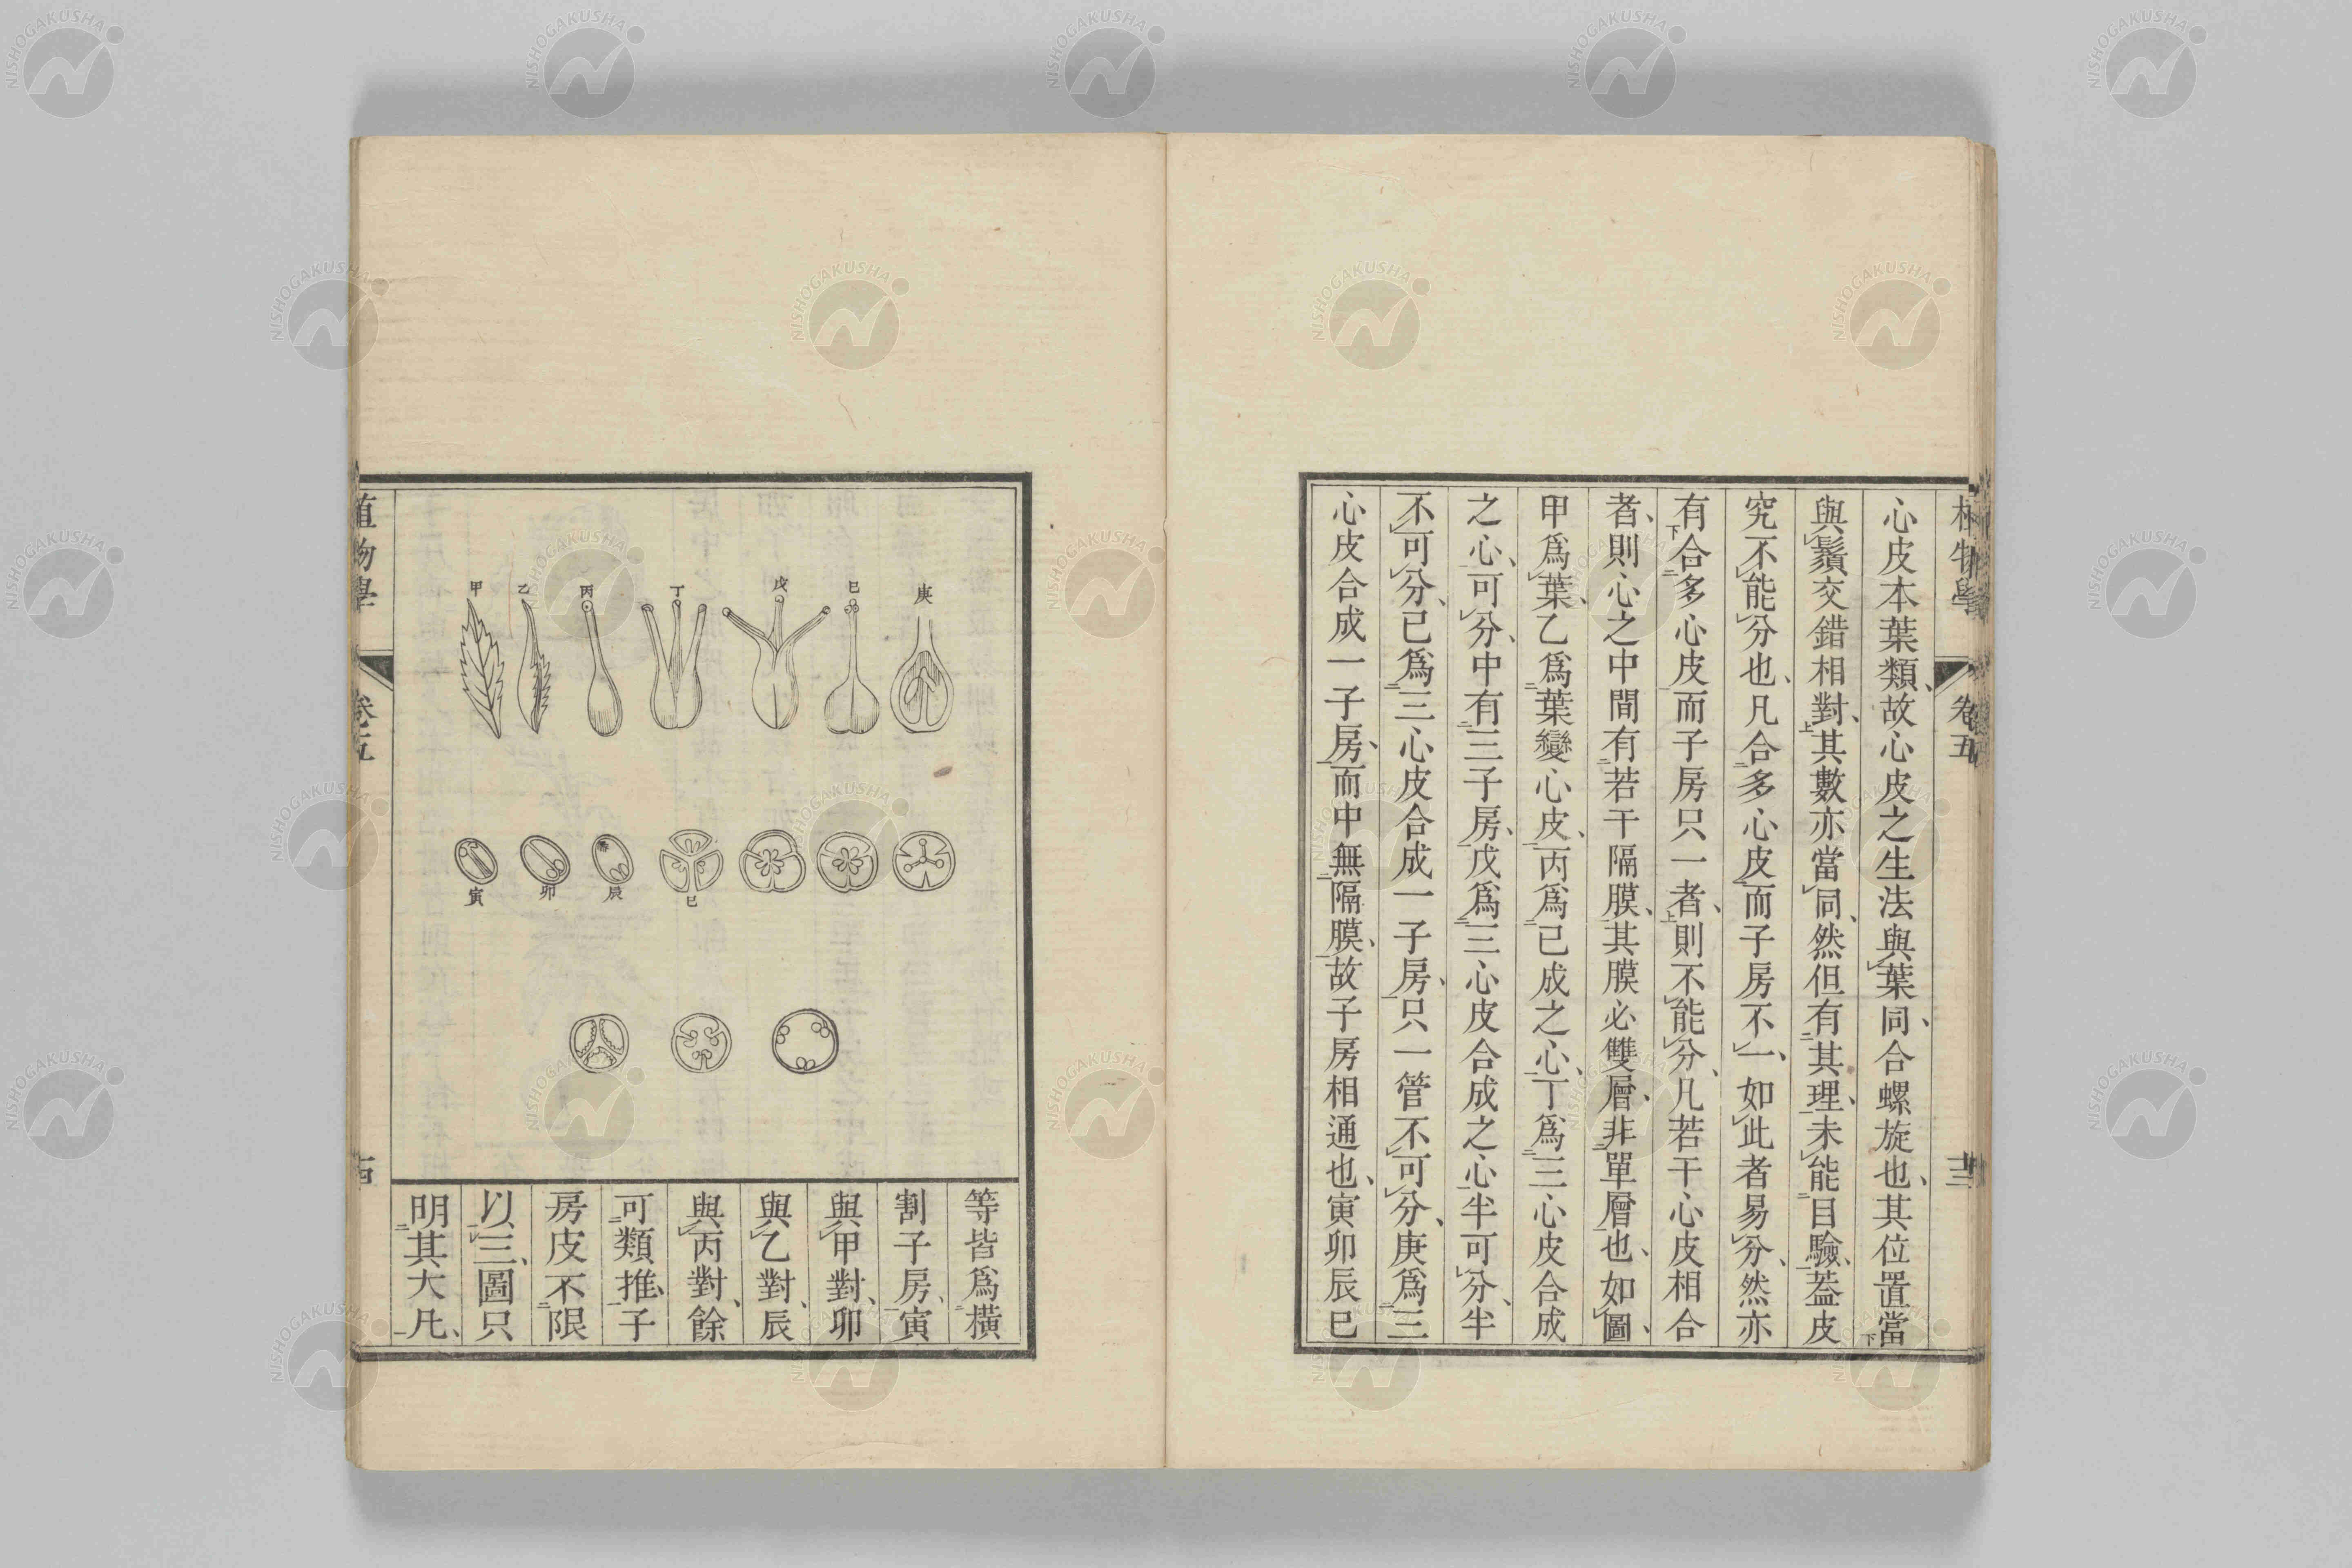 植物學 卷五 十三
心皮本葉類、故心皮之生法與葉同、合螺旋也、其位置當
與鬚交錯相對、其數亦當同、然但有其理、未能目驗、蓋皮
究不能分也、凡合多心皮而子房不一、如此者易分、然亦
有合多心皮而子房只一者、則不能分、凡若干心皮相合
者、則心之中間有若干隔膜、其膜必雙層、非單層也、如圖、
甲爲葉、乙爲葉變心皮、丙爲已成之心、丁爲三心皮合成
之心、可分、中有三子房、戊爲三心皮合成之心半可分、半
不可分、已爲三心皮合成一子房、只一管不可分、庚爲三
心皮合成一子房、而中無隔膜、故子房相通也、寅卯辰巳
庚
巳
戊
丁
丙
乙
甲
巳
辰
卯
寅
等皆爲橫
割子房、寅
與甲對、卯
與乙對、辰
與丙對、餘
可類推、子
房皮不限
以三、圖只
明其大凡、
植物學 卷五 十四
NISHOGAKUSHA